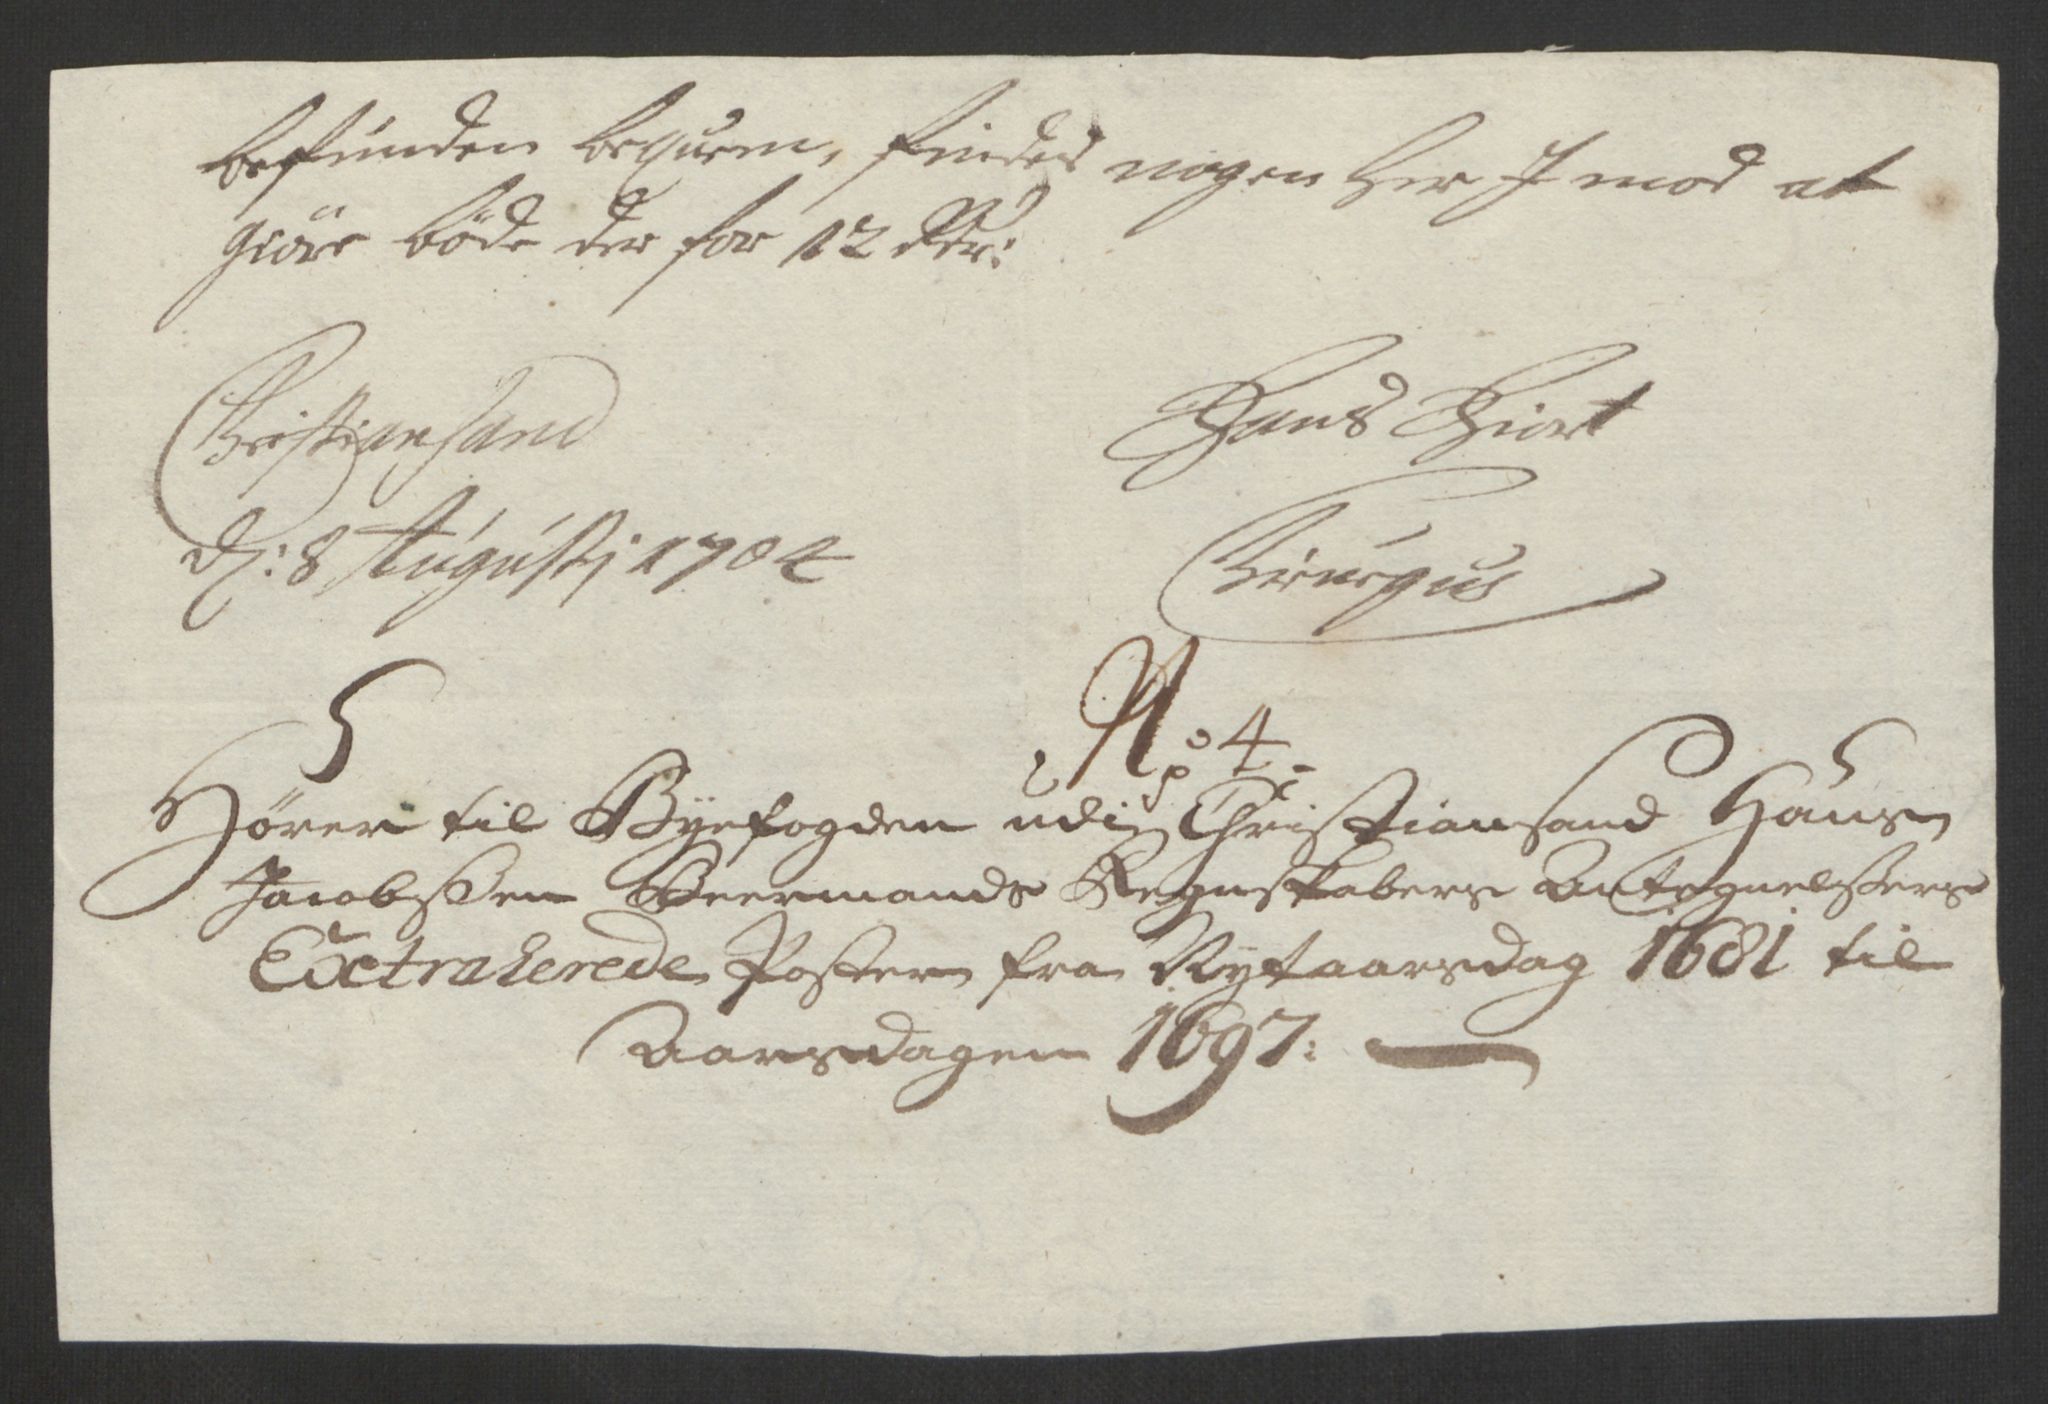 befunden bequem, findes nogen her J mod at
giöre böde der for 12 Rdr:
Christiansand
d: 8 Augustj 1704
Hans Hiort
Chirurgus
5
No 4:
Hörer til Byefogden udj Christiansand Hans
Jacobssen Beermands Regnskabers Antegnelssers
Extraherede Poster fra Nytaarsdag 1681 til
Aarsdagen 1697: